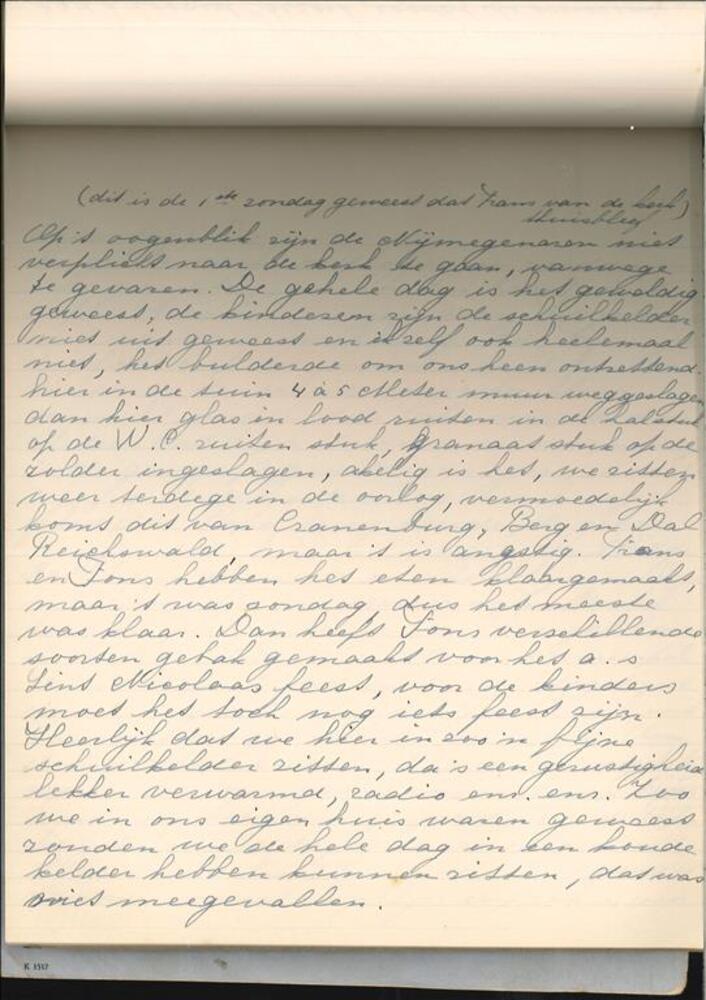 (dit is de 1ste zondag geweest dat Frans van de kerk)
thuisbleef
Op 't oogenblik zijn de Nijmegenaren niet
verplicht naar de kerk te gaan, vanwege
te gevaren. De gehele dag is het geweldig
geweest, de kinderen zijn de schuilkelder
niet uit geweest en ik zelf ook heelemaal
niet, het bulderde om ons heen ontzettend
hier in de tuin 4 à 5 Meter muur weggeslagen
dan hier glas in lood ruiten in de hal stuk
op de W.C. ruiten stuk, granaat stuk op de
zolder ingeslagen, akelig is het, we zitten
weer terdege in de oorlog, vermoedelijk
komt dit van Cranenburg, Berg en Dal
Reichswald, maar 't is angstig. Frans
en Fons hebben het eten klaargemaakt,
maar 't was zondag, dus het meeste
was klaar. Dan heeft Fons verschillende
soorten gebak gemaakt voor het a.s
Sint Nicolaas feest, voor de kinders
moet het toch nog iets feest zijn.
Heerlijk dat we hier in zoo'n fijne
schuilkelder zitten, da's een gerustigheid
lekker verwarmd, radio enz. enz. Zoo
we in ons eigen huis waren geweest
zouden we de hele dag in een koude
kelder hebben kunnen zitten, dat was
niet meegevallen.
K 1517